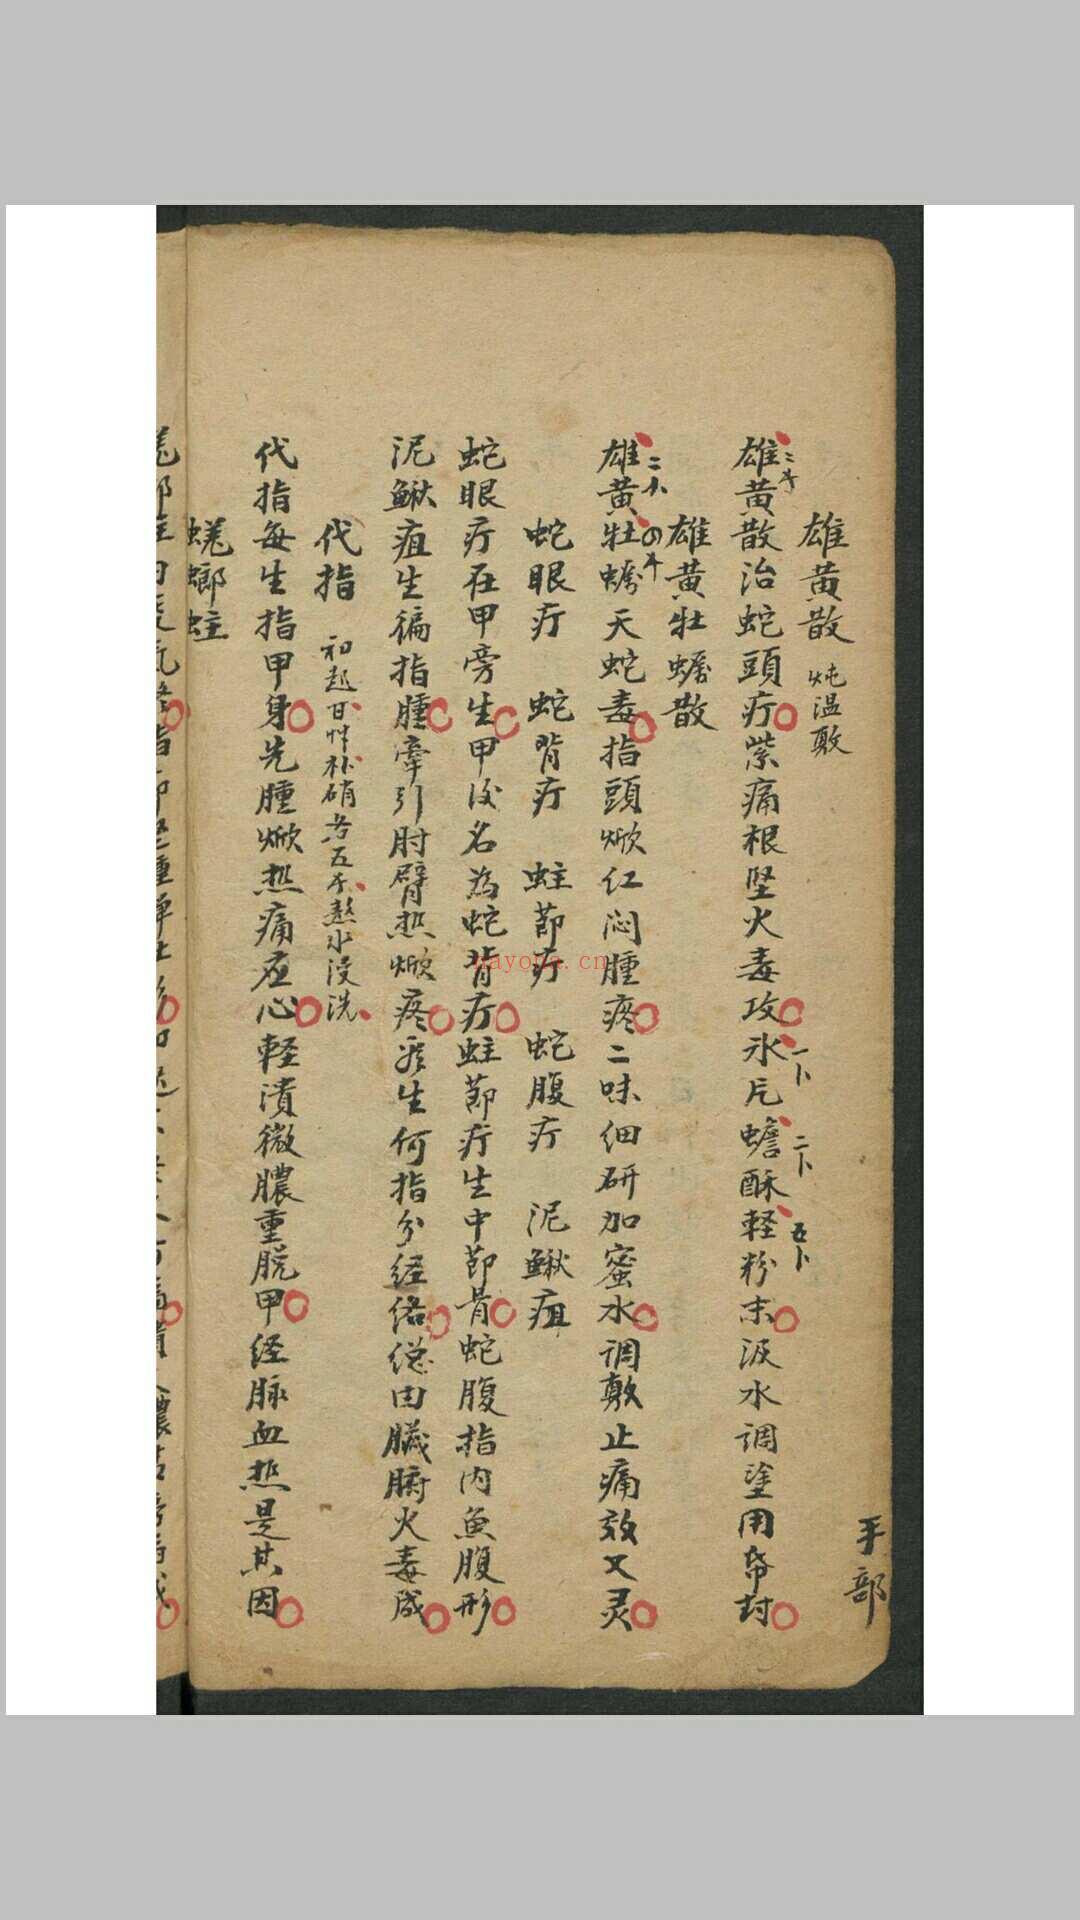 手部
雄黄散 炖温敷
雄黄散治蛇頭疔紫痛根坚火毒攻氷片蟾酥軽粉末汲水調塗用帋封
雄黄牡蠣散
雄黄牡蠣天蛇毒指頭焮红闷腫疼二味细研加蜜水調敷止痛效又灵
蛇眼疔 蛇背疔 蛀節疔 蛇腹疔 泥鰍疽
蛇眼疔在甲旁生甲后名為蛇背疔蛀節疔生中節骨蛇腹指内魚腹形
泥鰍疽生徧指腫牽引肘臂热焮疼看生何指分経络總由臟腑火毒成
代指 初起甘艸朴硝各五熬水浸洗
代指每生指甲身先腫焮热痛应心軽潰微膿重脱甲経脉血热是其因
蜣螂蛀
nayona.cn